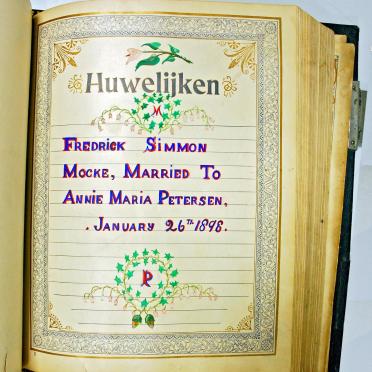 Huwelijken
M
Fredrick Simmon
Mocke, Married To
Annie Maria Petersen,
. January 26TH 1898.
P